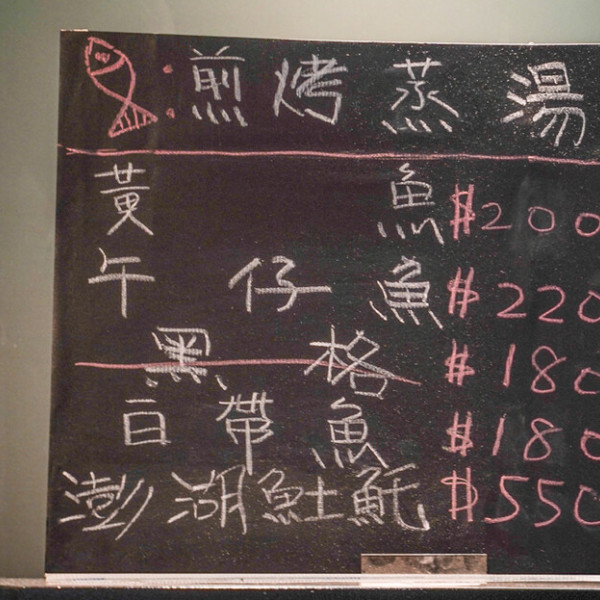 : 煎 烤 蒸 湯
黃 魚 $200
午 仔 魚 $220
黑 格 $180
白 帶 魚 $180
澎 湖 魠 $550